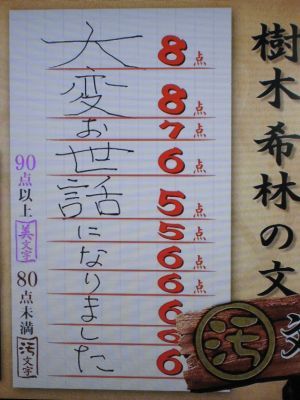 樹木希林の文
8点
8点
7点
6点
5点
5点
6点
6点
6
6
大変お世話になりました
90点以上
美文字
80点未満
汚文字
汚